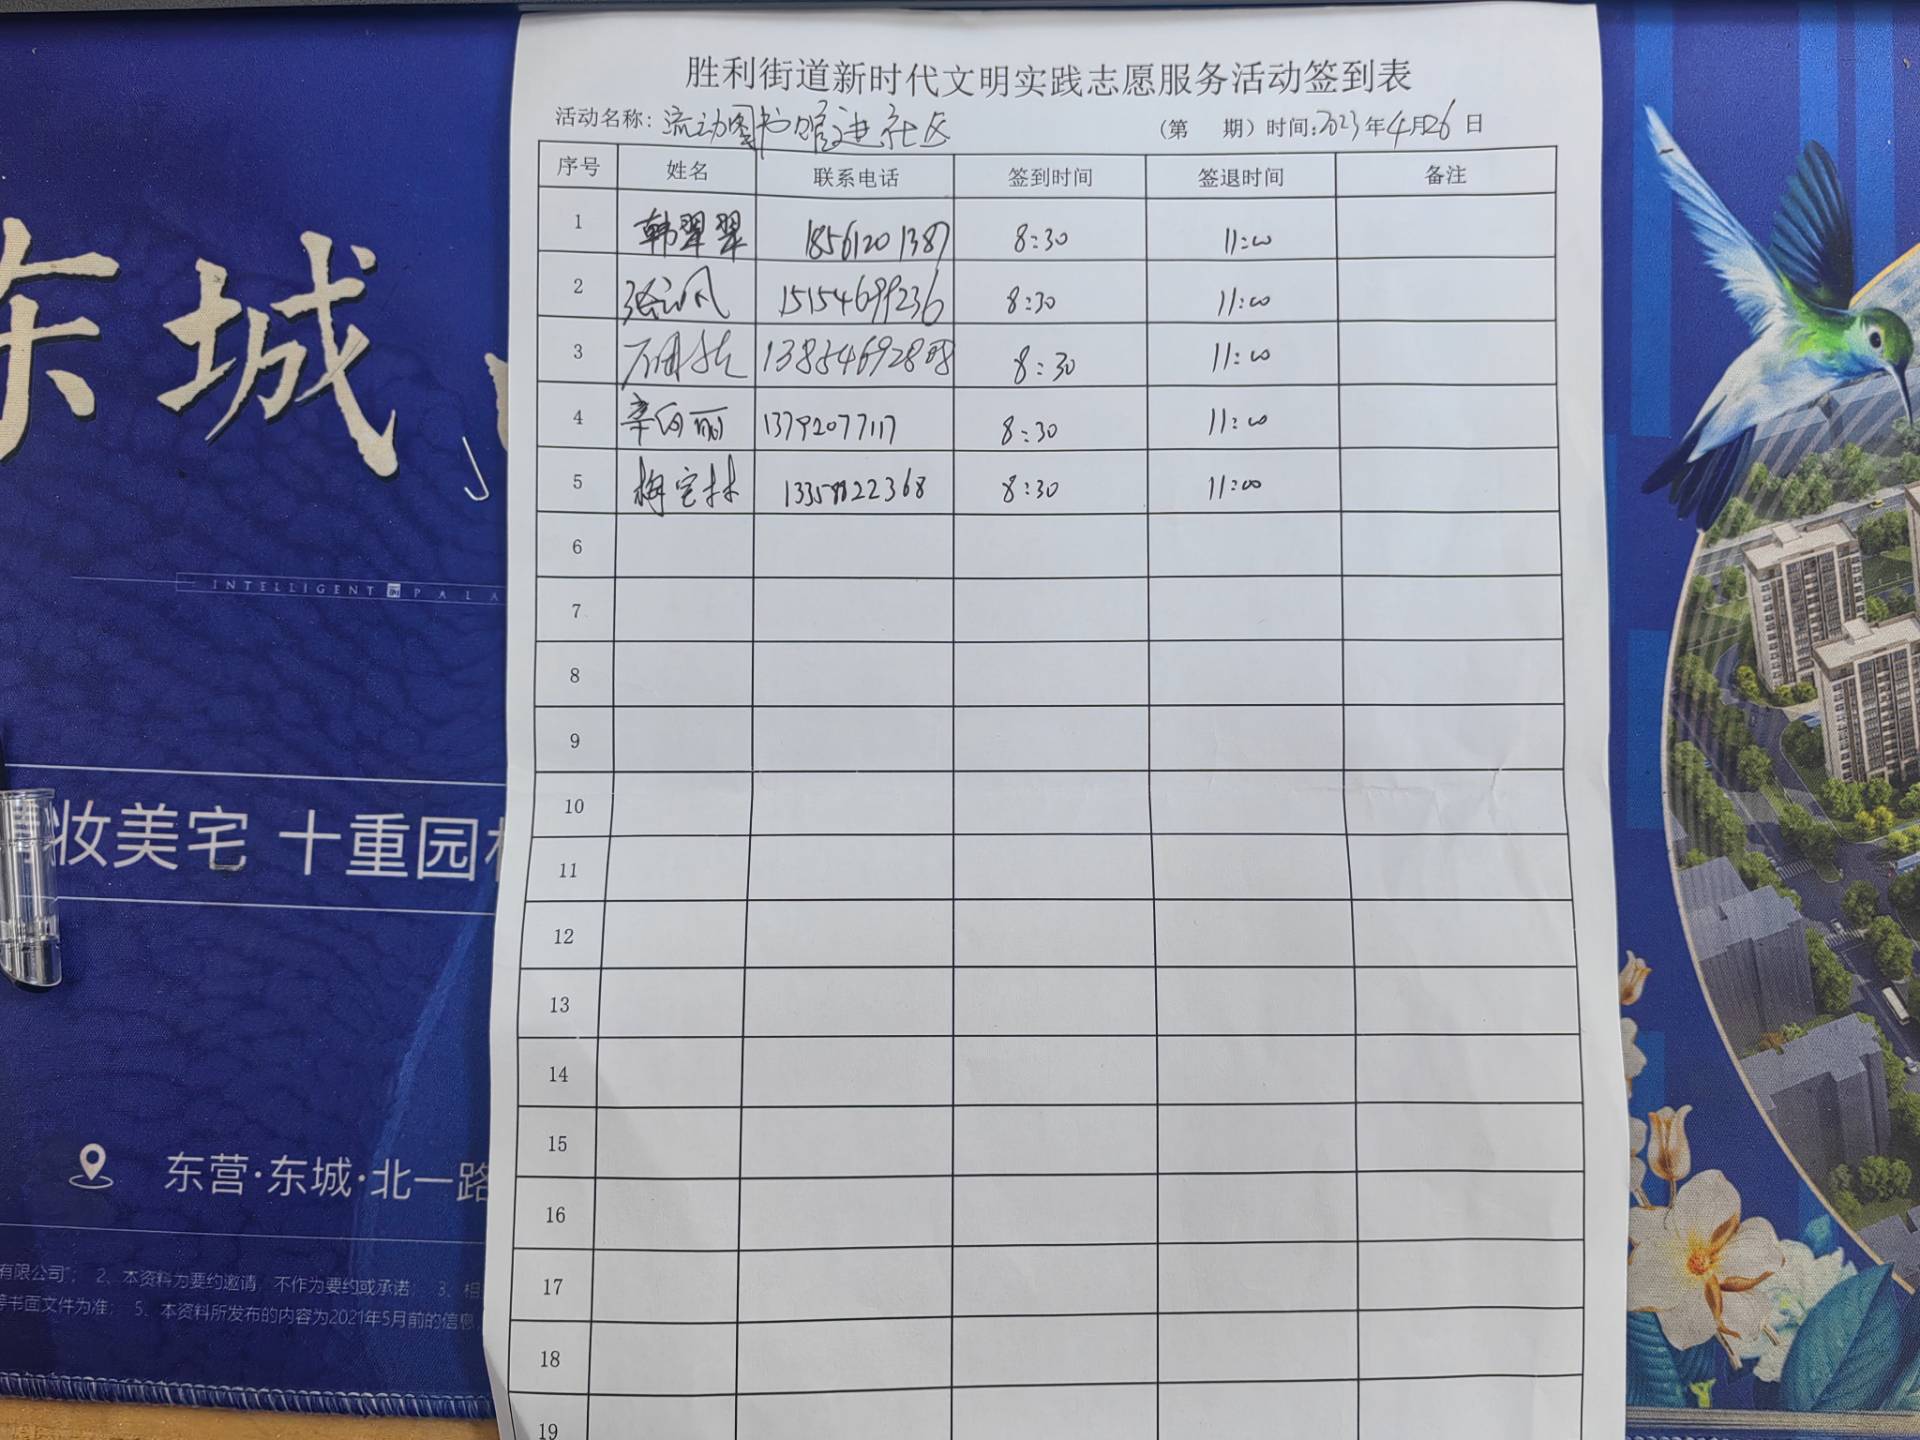 胜利街道新时代文明实践志愿服务活动签到表
活动名称：流动图书馆进社区 （第 期）时间：2023年4月26日
序号 姓名 联系电话 签到时间 签退时间 备注
1 韩翠翠 18561201387 8:30 11:00
2 15154699236 8:30 11:00
3 8:30 11:00
4 辛向丽 13792077117 8:30 11:00
5 梅宝林 8:30 11:00
6
7
8
9
10
11
12
13
14
15
16
17
18
19
东城
INTELLIGENT PALA
妆美宅 十重园
东营·东城·北一路
有限公司”； 2、本资料为要约邀请，不作为要约或承诺； 3、相
书面文件为准； 5、本资料所发布的内容为2021年5月前的信息